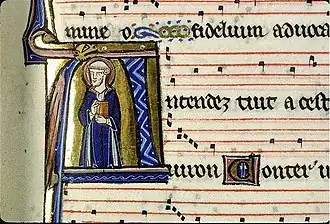 mine o fidelium aduoca
ntendez tuit a cest
uiron Conter u